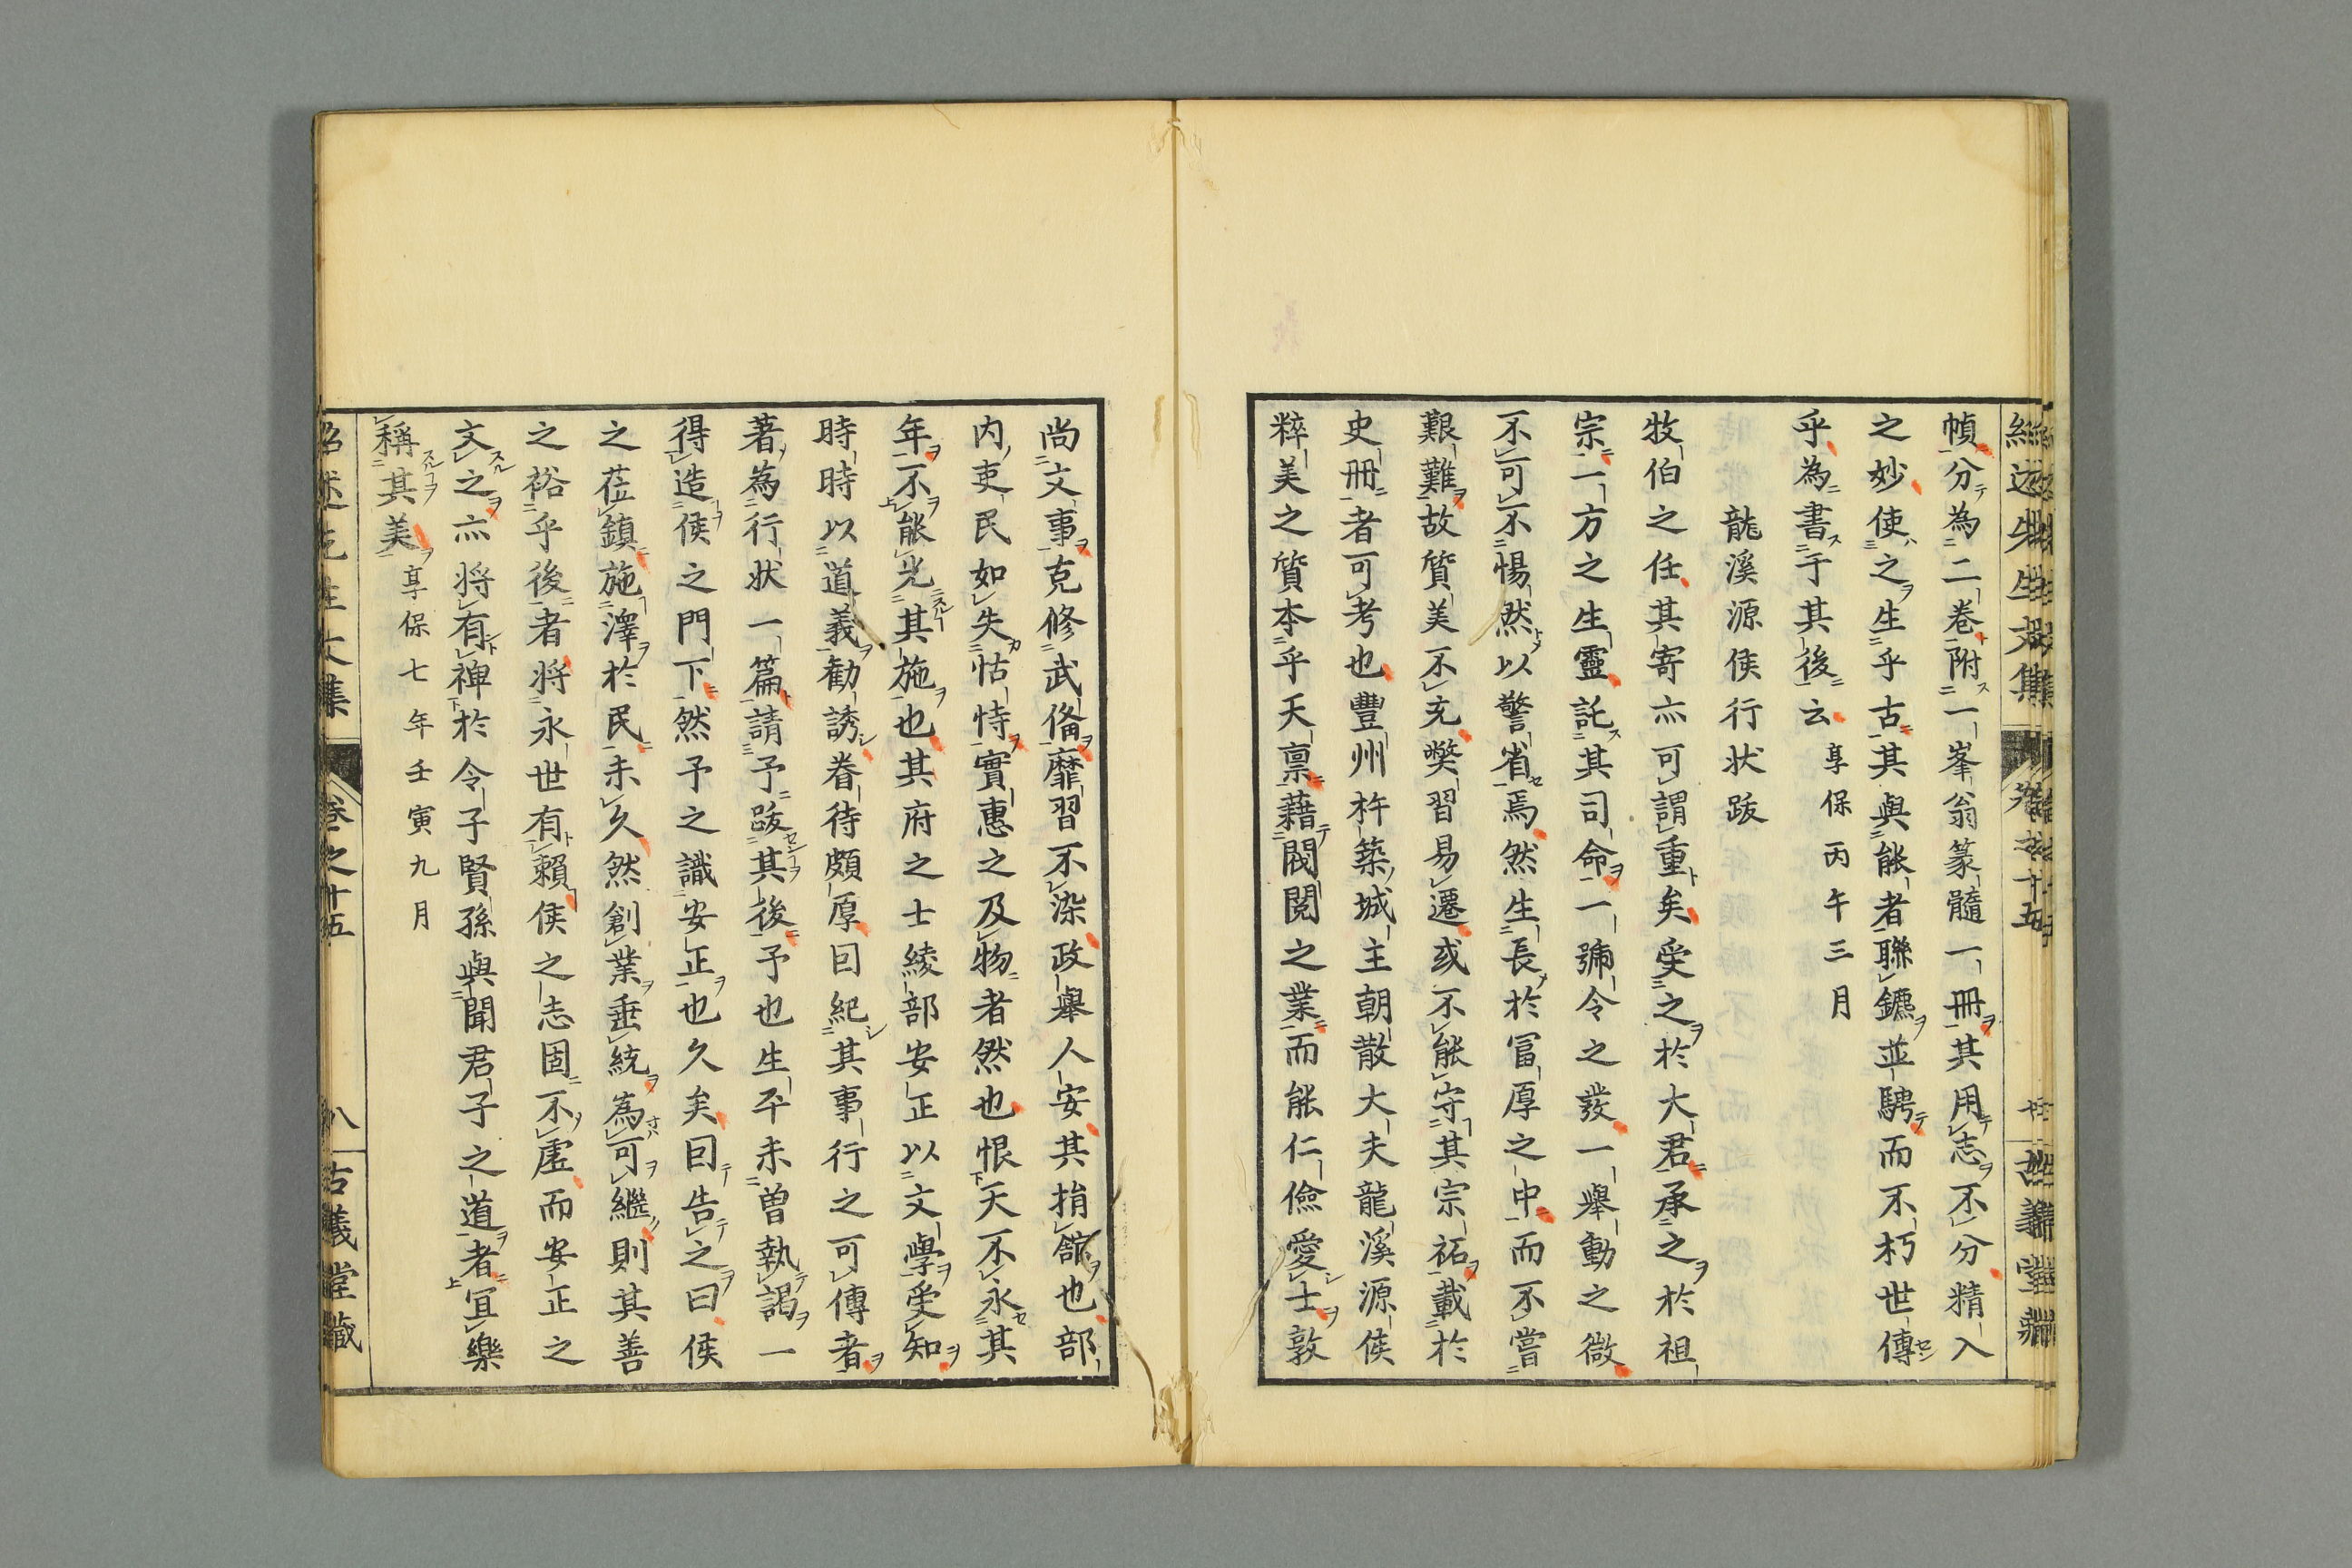 幀分為二卷附一峯翁篆髓一冊其用志不分精入
之妙使之生乎古其與能者聯鑣並騁而不朽世傳
乎為書于其後云享保丙午三月
龍溪源侯行状跋
牧伯之任其寄亦可謂重矣受之於大君承之於祖
宗一方之生靈託其司命一號令之發一舉動之微
不可不惕然以警省焉然生長於冨厚之中而不嘗
艱難故質美不充獘習易遷或不能守其宗祏載於
史冊者可考也豐州杵築城主朝散大夫龍溪源侯
粹美之質本乎天禀藉閥閱之業而能仁儉愛士敦
尚文事克修武俻靡習不染政舉人安其捐舘也部
内吏民如失怙恃實惠之及物者然也恨天不永其
年不能光其施也其府之士綾部安正以文學受知
時時以道義勸誘眷待頗厚囙紀其事行之可傳者
著為行状一篇請予跋其後予也生平未曽執謁一
得造侯之門下然予之識安正也久矣囙告之曰侯
之莅鎮施澤於民未久然創業垂統為可繼則其善
之裕乎後者將永世有賴侯之志固不虛而安正之
文之亦将有裨於令子賢孫與聞君子之道者冝樂
稱其美享保七年壬寅九月
紹述先生文集 卷之十五 八 古義堂藏